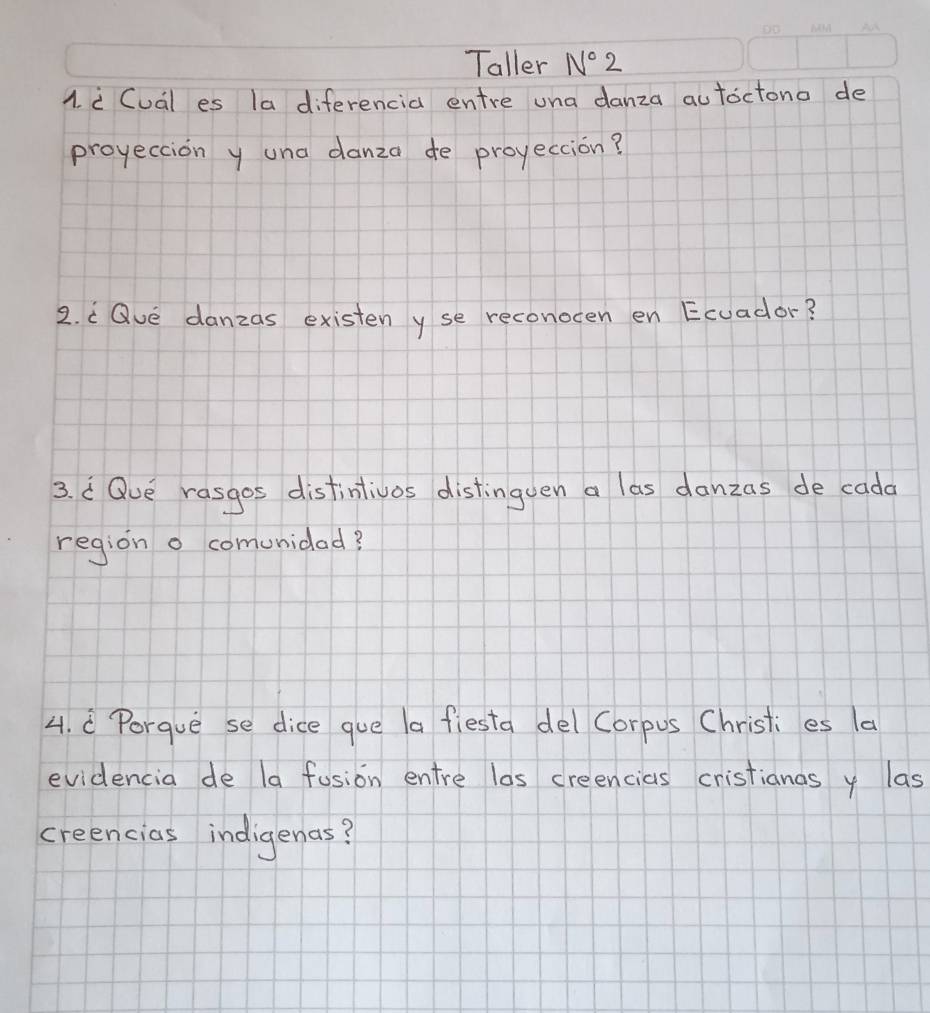 DD MM AA
Taller N° 2
1. ¿Cuál es la diferencia entre una danza autóctona de
proyección y una danza de proyección?
2. ¿Qué danzas existen y se reconocen en Ecuador?
3. ¿Qué rasgos distintivos distinguen a las danzas de cada
región o comunidad?
4. ¿Porqué se dice que la fiesta del Corpus Christi es la
evidencia de la fusión entre las creencias cristianas y las
creencias indigenas?